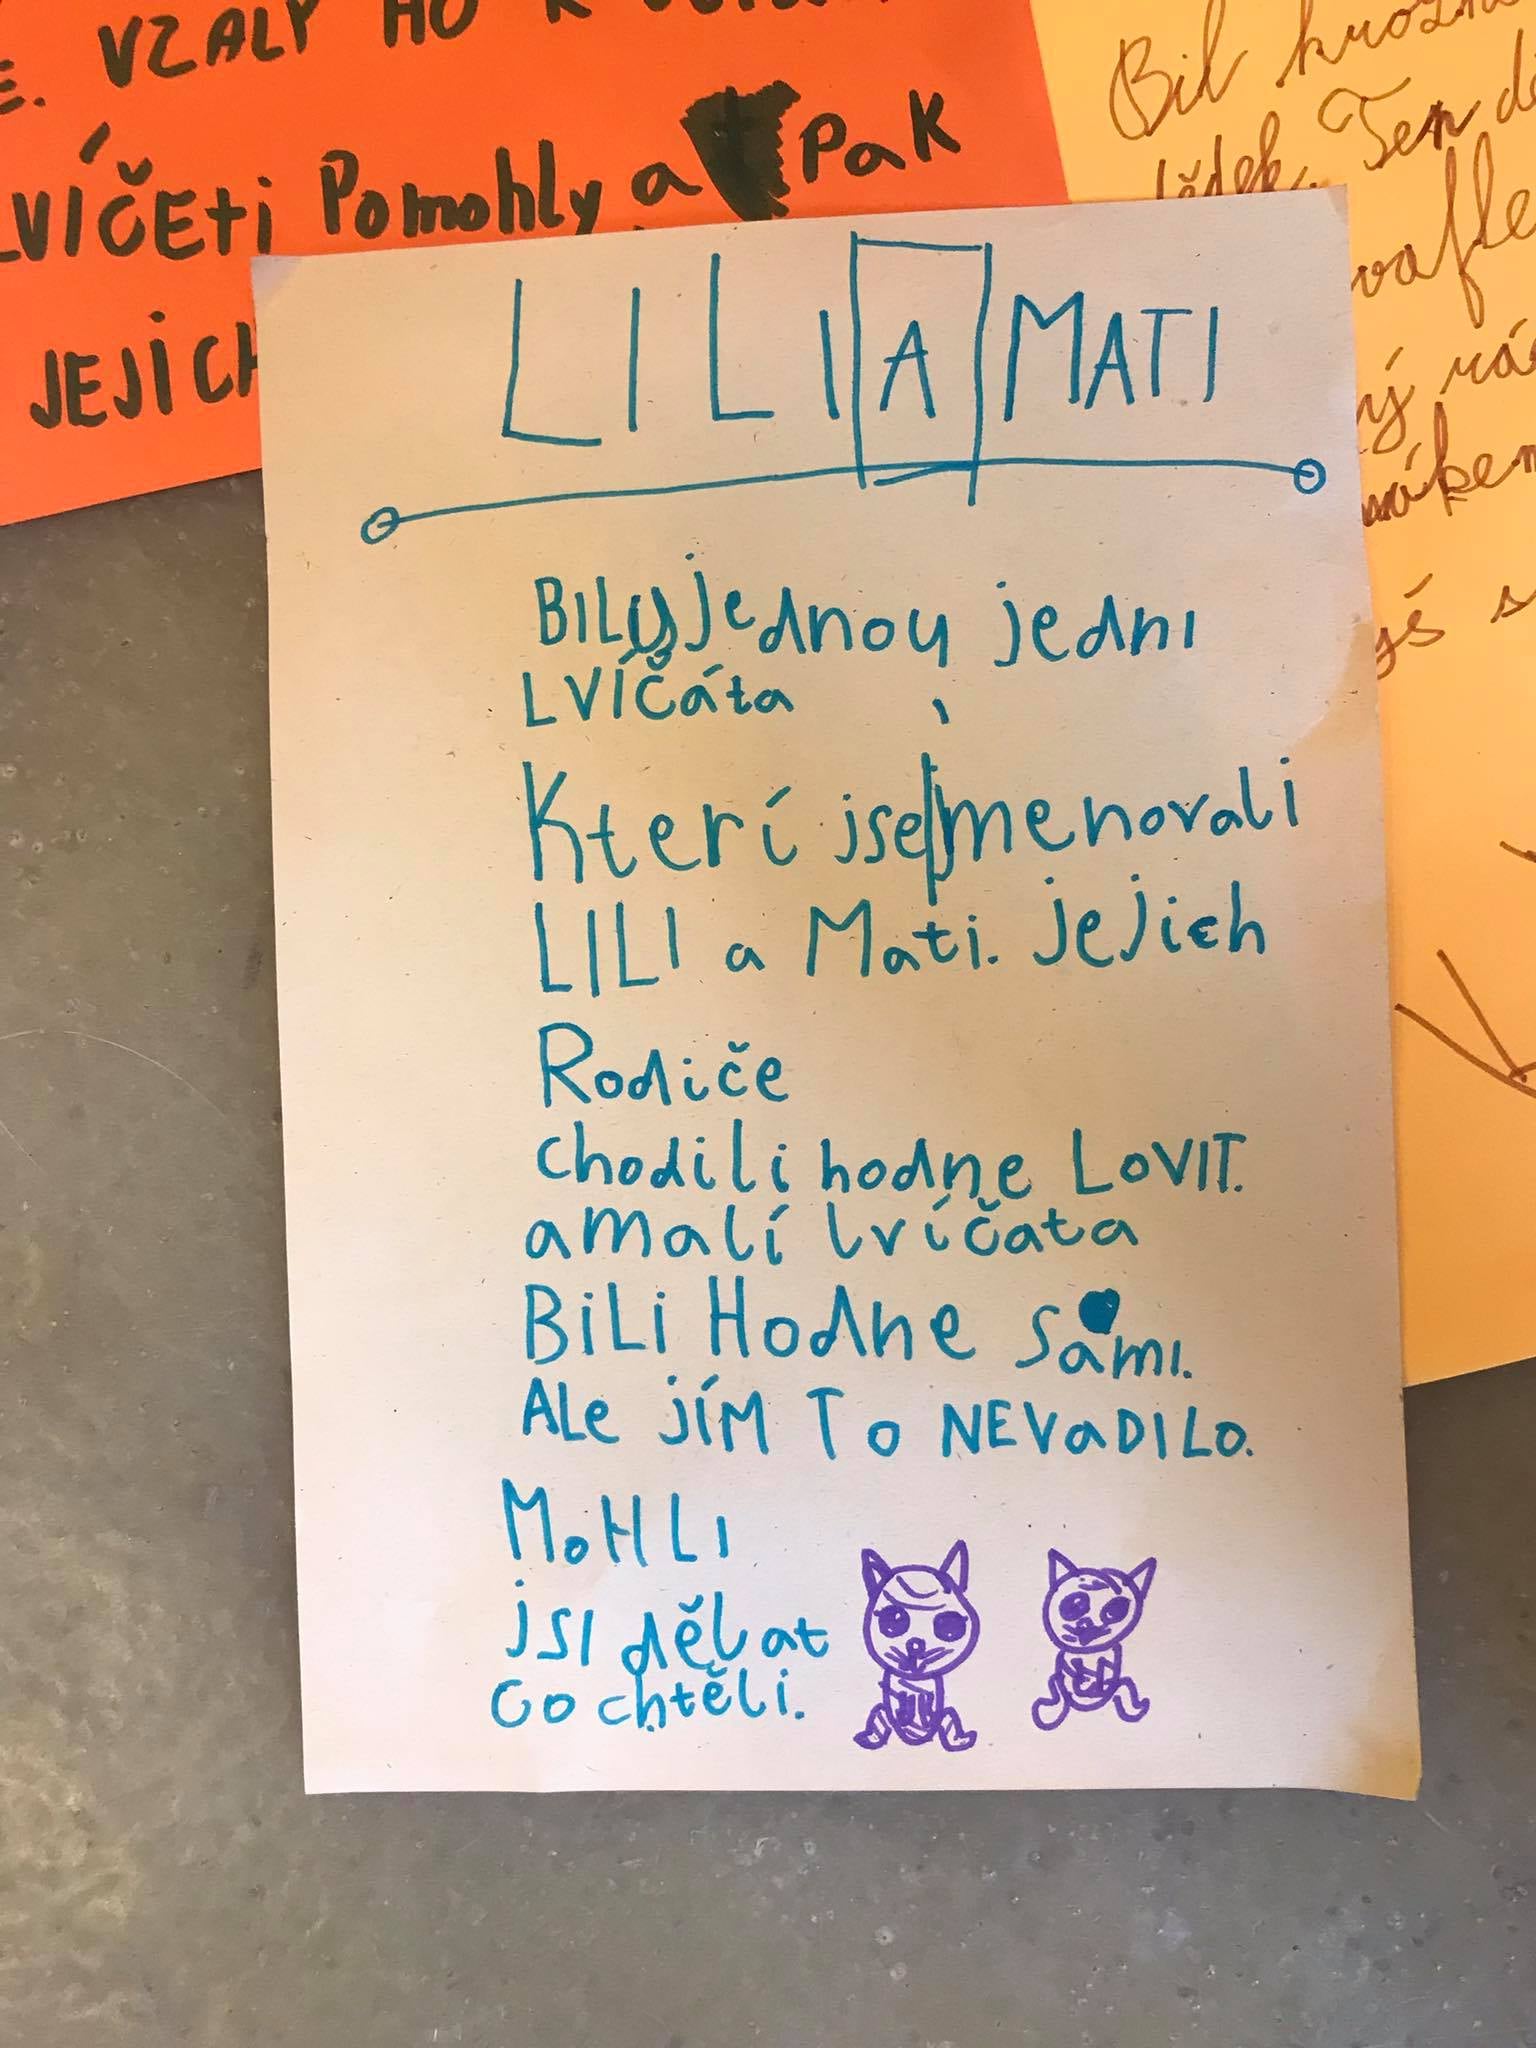 VZALY HO K
LVÍČEti Pomohly a Pak
JEJICH
Bil
Ten
LILI A MATI
BILY jednou jedni
LVÍČáta
Kterí jse jmenovali
LILI a Mati. jejich
Rodiče
chodili hodne LOVIT.
a malí lvíčata
BiLi Hodne sami.
ALe JÍM To NEVaDILO.
MoHLI
jsi dělat
co chtěli.